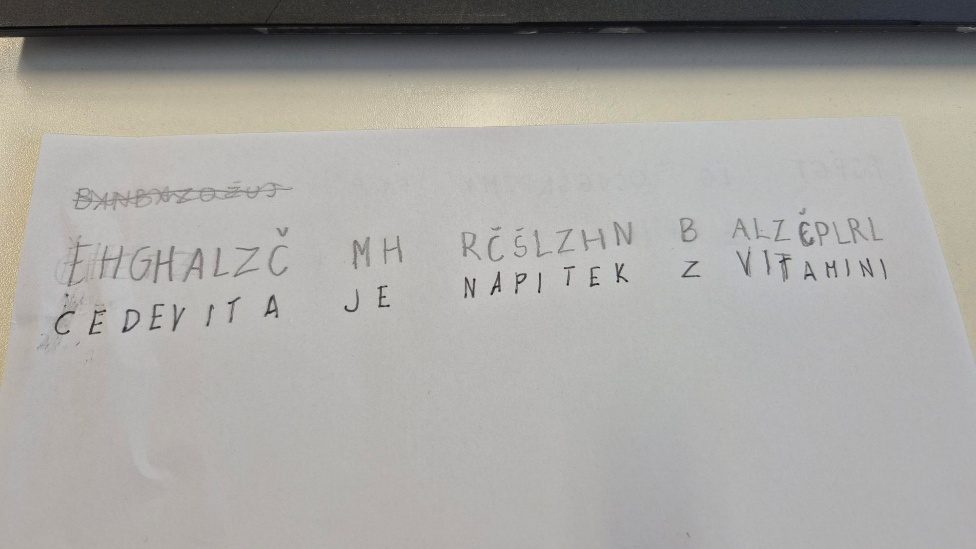 EHGHALZČ MH RČŠLZHN B ALZČPLRL
CEDEVITA JE NAPITEK Z VITAMINI